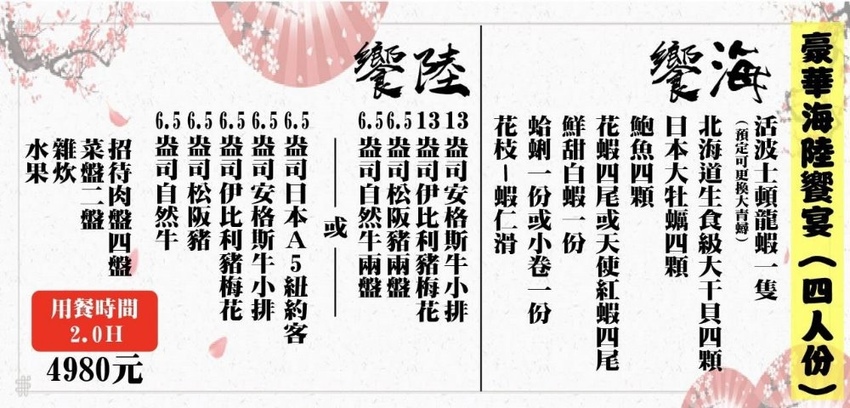 豪華海陸饗宴（四人份）
海饗
活波士頓龍蝦一隻
（預定可更換大青蟳）
北海道生食級大干貝四顆
日本大牡蠣四顆
鮑魚四顆
花蝦四尾或天使紅蝦四尾
鮮甜白蝦一份
蛤蜊一份或小卷一份
花枝-蝦仁滑
陸饗
13盎司安格斯牛小排
13盎司伊比利豬梅花
6.5盎司松阪豬兩盤
6.5盎司自然牛兩盤
或
6.5盎司日本A5紐約客
6.5盎司安格斯牛小排
6.5盎司伊比利豬梅花
6.5盎司松阪豬
6.5盎司自然牛
招待肉盤四盤
菜盤二盤
雜炊
水果
用餐時間
2.0H
4980元